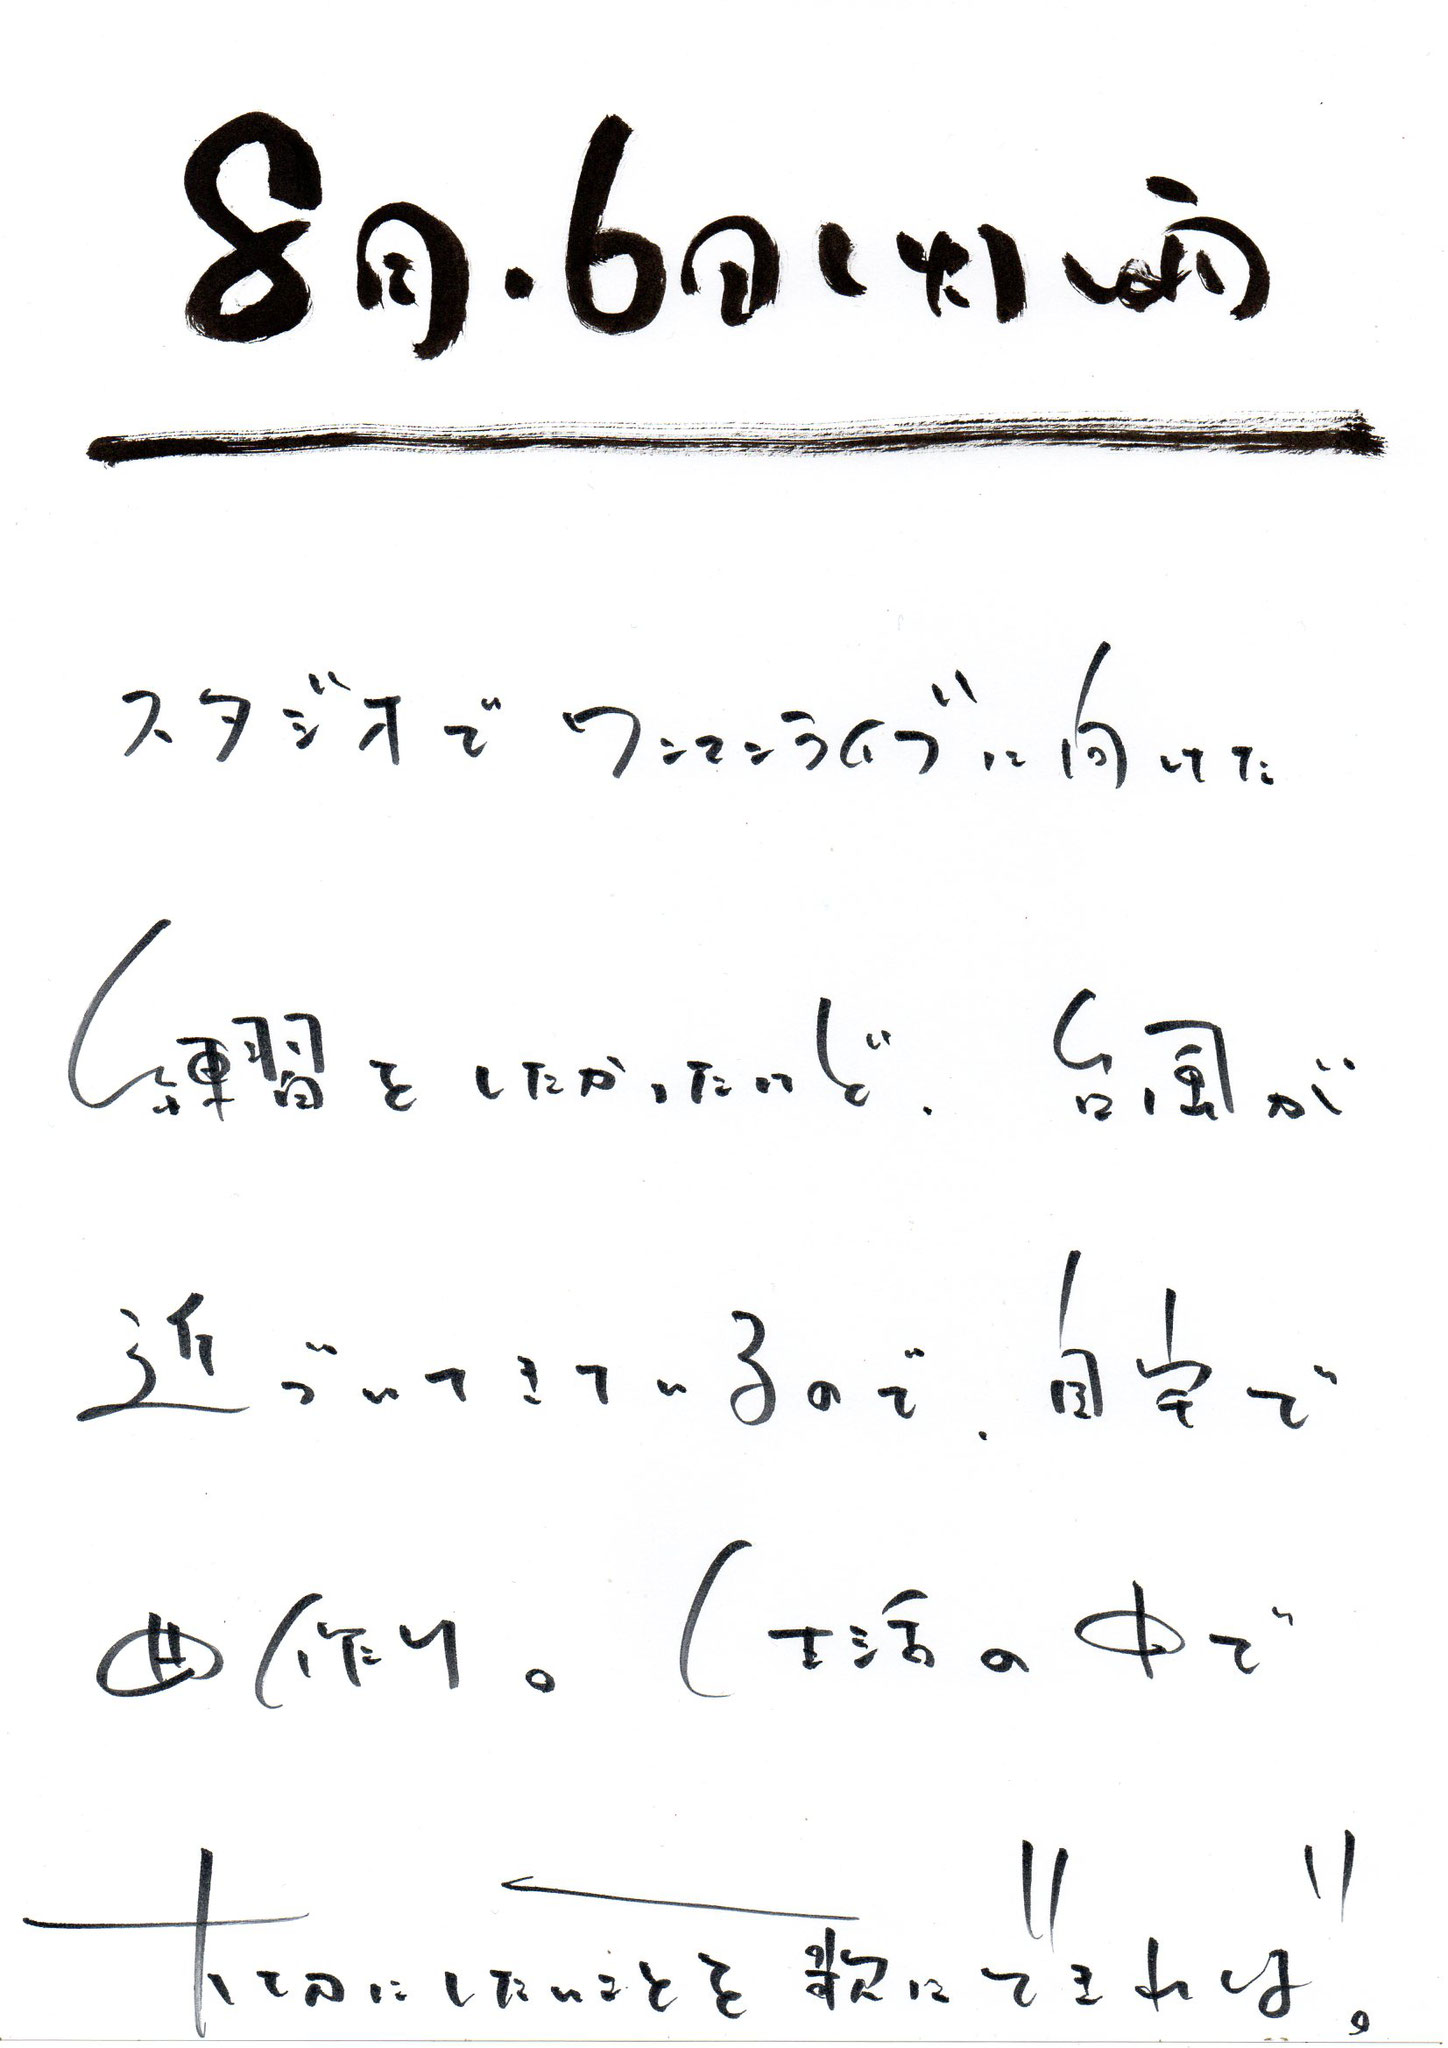 8月.6日(火)雨
スタジオでワンマンライブに向けた
練習をしたかったけど、台風が
近づいてきているので、自宅で
曲作り。生活の中で
大切にしたいことを歌にできれば。